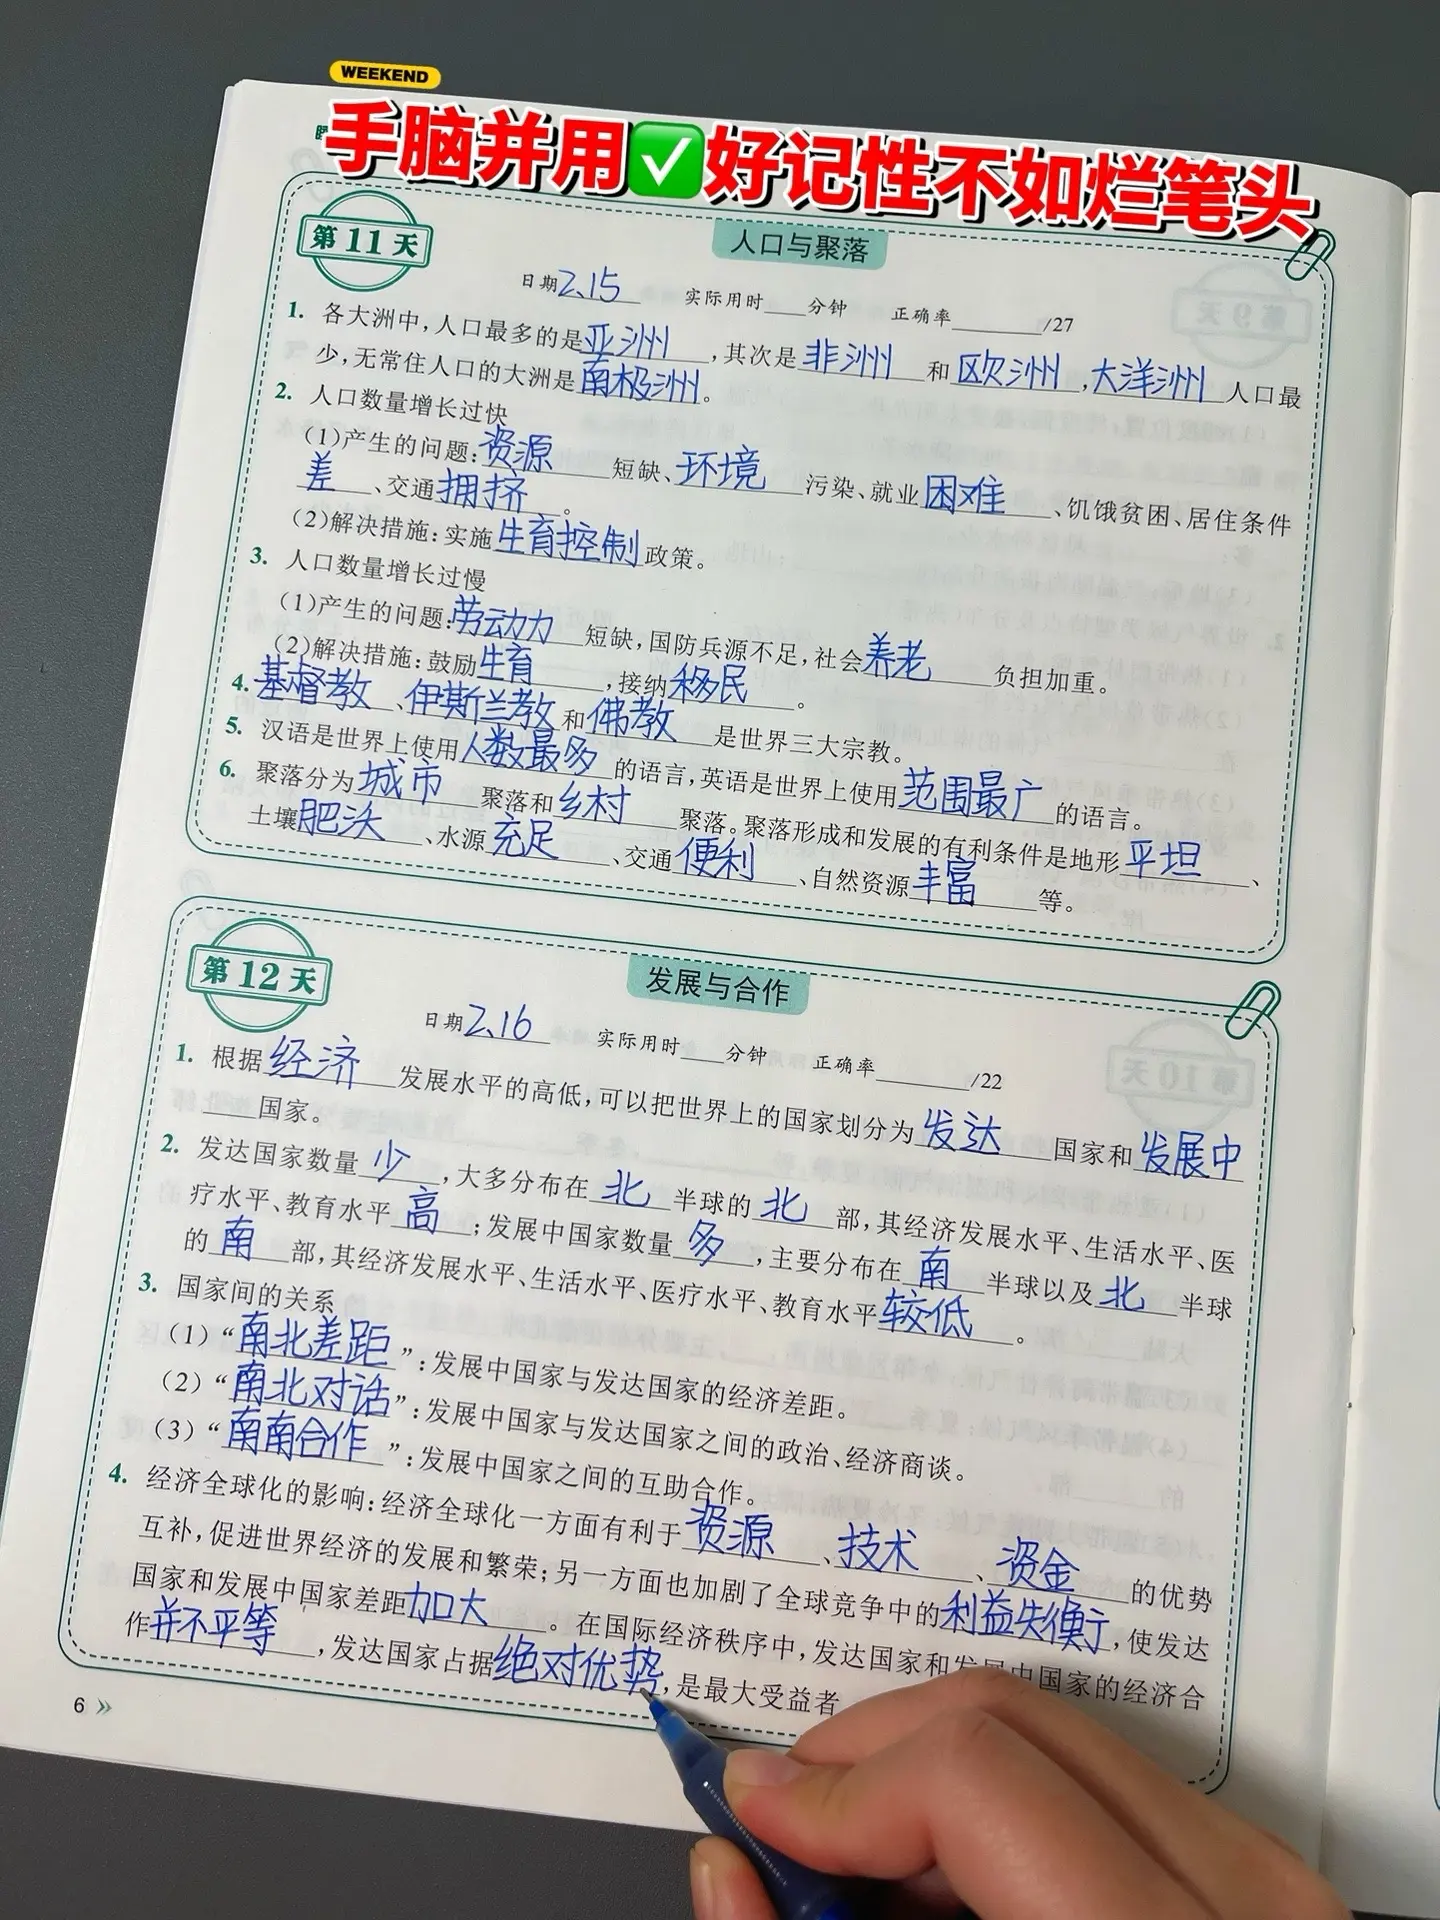 WEEKEND
手脑并用✅好记性不如烂笔头
第11天
人口与聚落
日期2.15 实际用时___分钟 正确率______/27
1. 各大洲中,人口最多的是亚洲,其次是非洲和欧洲,大洋洲人口最
少,无常住人口的大洲是南极洲。
2. 人口数量增长过快
(1)产生的问题:资源短缺、环境污染、就业困难、饥饿贫困、居住条件
差、交通拥挤。
(2)解决措施:实施生育控制政策。
3. 人口数量增长过慢
(1)产生的问题:劳动力短缺,国防兵源不足,社会养老负担加重。
(2)解决措施:鼓励生育,接纳移民。
4. 基督教、伊斯兰教和佛教是世界三大宗教。
5. 汉语是世界上使用人数最多的语言,英语是世界上使用范围最广的语言。
6. 聚落分为城市聚落和乡村聚落。聚落形成和发展的有利条件是地形平坦、
土壤肥沃、水源充足、交通便利、自然资源丰富等。
第12天
发展与合作
日期2.16 实际用时___分钟 正确率______/22
1. 根据经济发展水平的高低,可以把世界上的国家划分为发达国家和发展中
国家。
2. 发达国家数量少,大多分布在北半球的北部,其经济发展水平、生活水平、医
疗水平、教育水平高;发展中国家数量多,主要分布在南半球以及北半球
的南部,其经济发展水平、生活水平、医疗水平、教育水平较低。
3. 国家间的关系
(1)“南北差距”:发展中国家与发达国家的经济差距。
(2)“南北对话”:发展中国家与发达国家之间的政治、经济商谈。
(3)“南南合作”:发展中国家之间的互助合作。
4. 经济全球化的影响:经济全球化一方面有利于资源、技术、资金的优势
互补,促进世界经济的发展和繁荣;另一方面也加剧了全球竞争中的利益失衡,使发达
国家和发展中国家差距加大。在国际经济秩序中,发达国家和发展中国家的经济合
作并不平等,发达国家占据绝对优势,是最大受益者
6 »